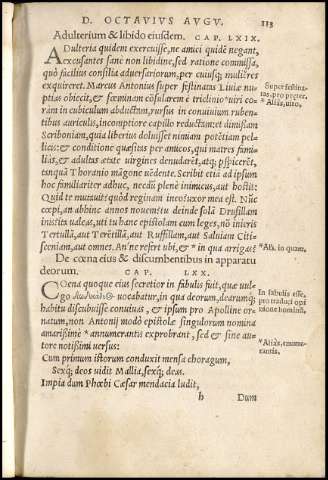 D. OCTAVIUS AUGU. 113
Adulterium & libido eiusdem. CAP. LXIX.
ADulteria quidem exercuisse, ne amici quidē negant,
excusantes sanè non libidine, sed ratione commissa,
quò facilius consilia aduersariorum, per cuiusq; mulieres
exquireret. Marcus Antonius super festinatas Liuiæ nu-
ptias obiecit, & fœminam cōsularem è triclinio uiri co-
ram in cubiculum abductam, rursus in conuiuium ruben-
tibus auriculis, incomptiore capillo reductam: et dimissam
Scriboniam, quia liberius doluisset nimiam potētiam pel-
licis: & conditiones quæsitas per amicos, qui matres fami-
lias, & adultas ætate uirgines denudarēt, atq; pspicerēt,
tanquā Thoranio māgone uēdente. Scribit etiā ad ipsum
hoc familiariter adhuc, necdū plenè inimicus, aut hostis:
Quid te mutauit? quòd reginam ineo? uxor mea est. Nūc
cœpi, an abhinc annos nouem? tu deinde solā Drusillam
inis? ita ualeas, uti tu hanc epistolam cum leges, nō inieris
Tertullā, aut Terētillā, aut Ruffillam, aut Saluiam Titi-
sceniam, aut omnes. An ne refert ubi, & * in qua arrigas?
De cœna eius & discumbentibus in apparatu
deorum. CAP. LXX.
COena quoque eius secretior in fabulis fuit, quæ uul-
go vocabatur, in qua deorum, dearumq́;
habitu discubuisse conuiuas, & ipsum pro Apolline or-
natum, non Antonij modò epistolæ singulorum nomina
amarissimè * annumerantis exprobrant, sed & sine au-
tore notissimi uersus:
Cum primum istorum conduxit mensa choragum,
Sexq́; deos uidit Mallia, sexq́; deas.
Impia dum Phœbi Cæsar mendacia ludit,
h Dum
Super festina-
tas, pro præter.
* Aliàs, uiro,
* Aliàs, in quam,
In fabulis esse,
pro traduci opi
nione hominū,
* Aliàs, enume-
rantis,